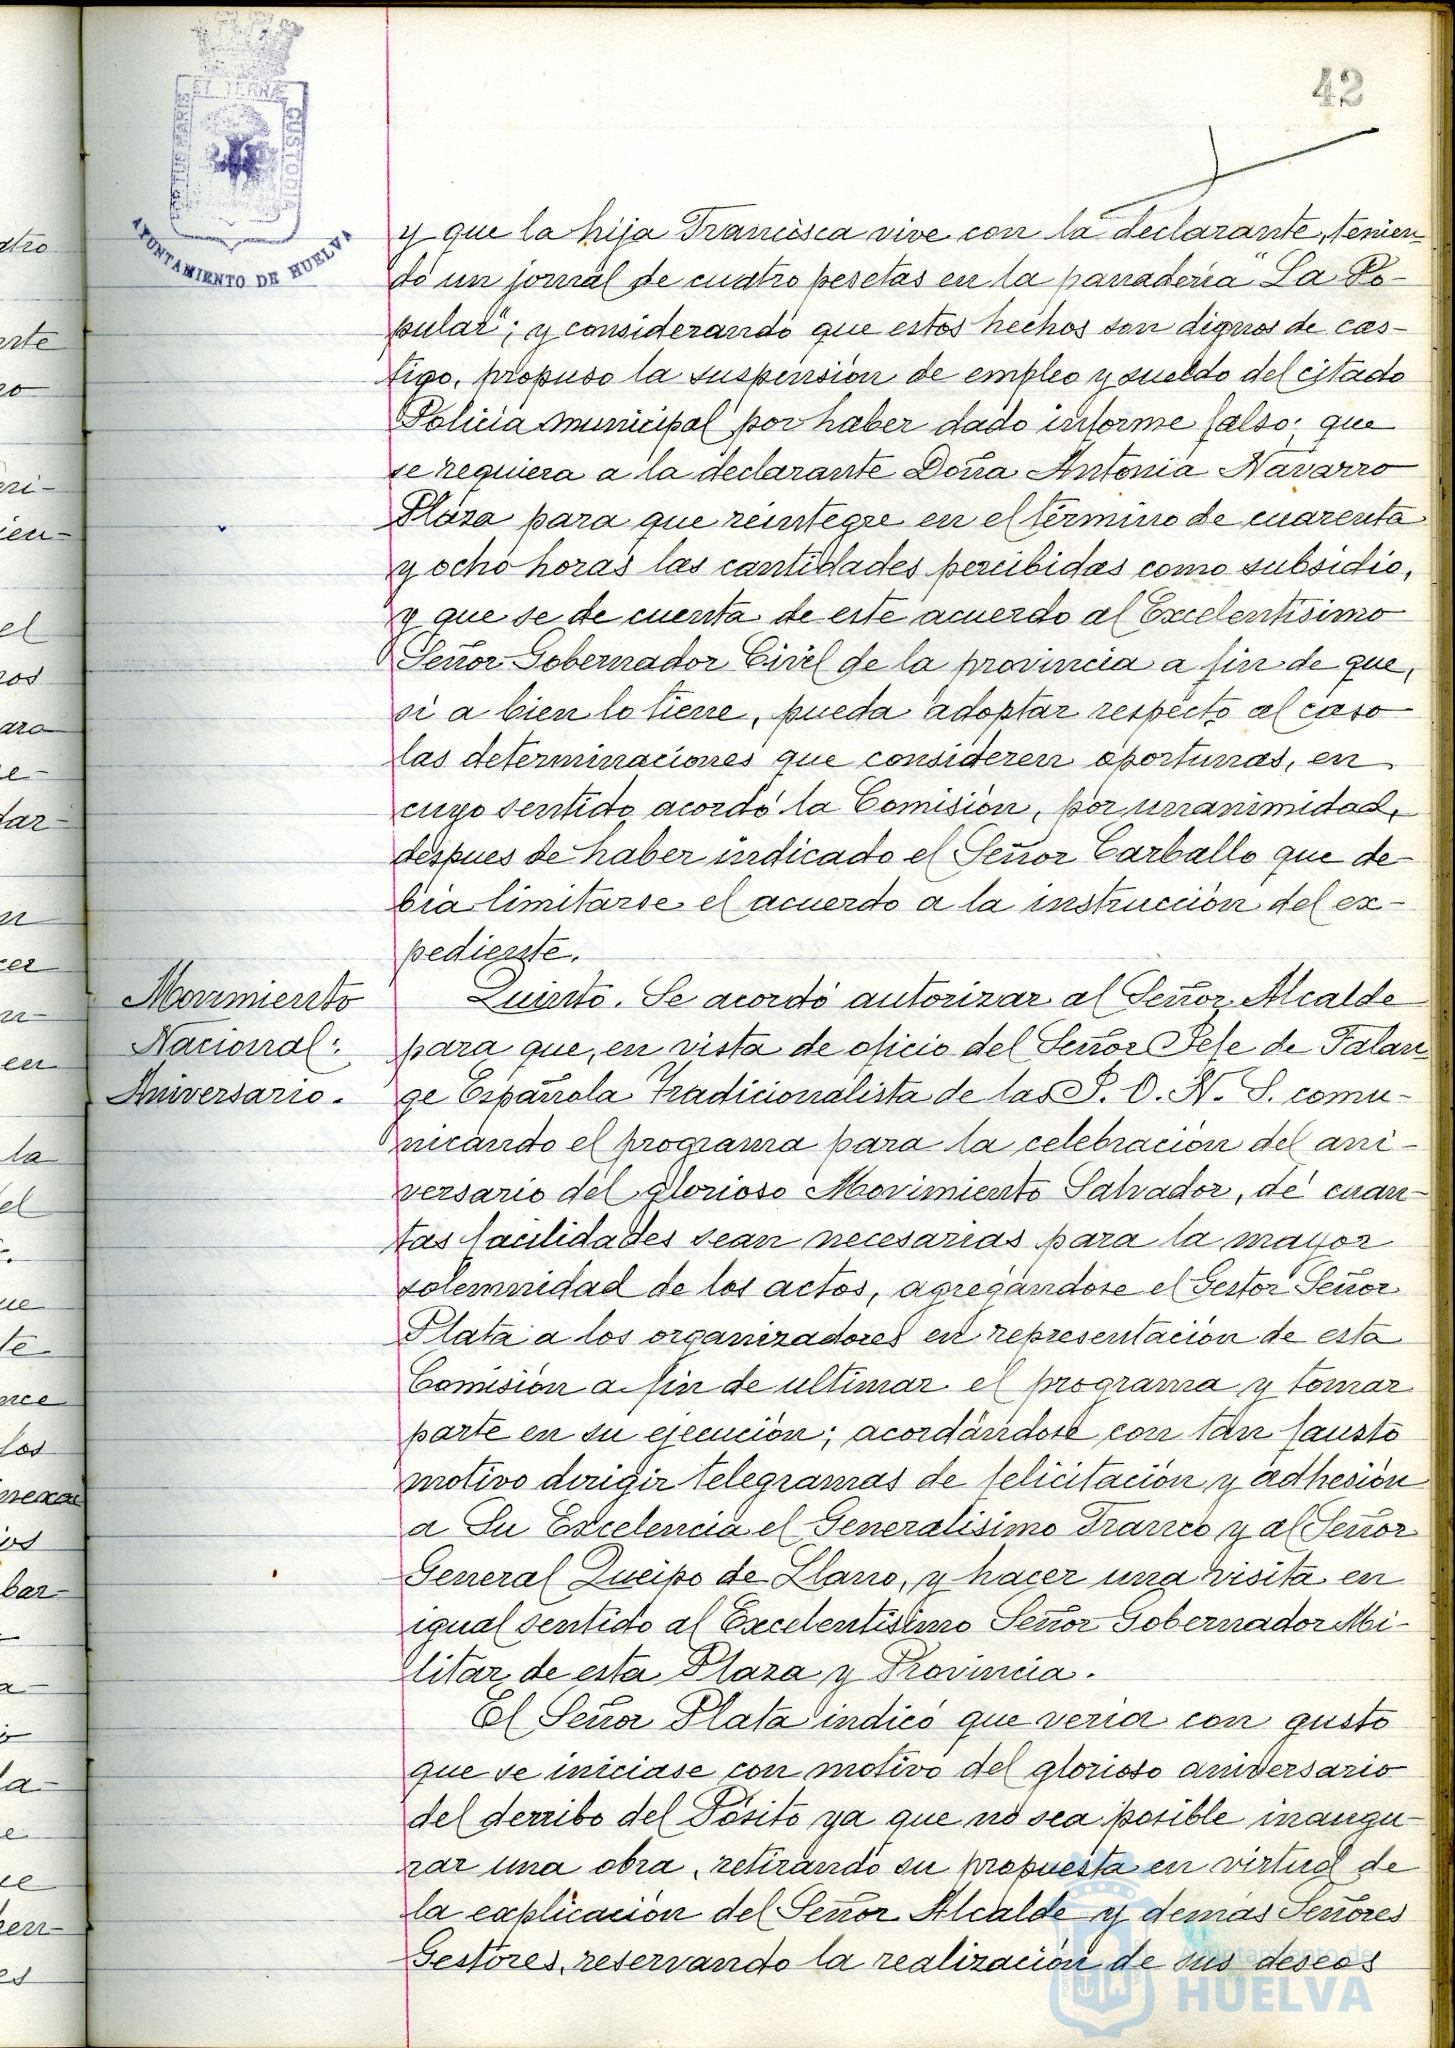 42
PORTUS MARIS ET TERRÆ CUSTODIA
AYUNTAMIENTO DE HUELVA
y que la hija Francisca vive con la declarante, tenien-
do un jornal de cuatro pesetas en la panadería "La Po-
pular"; y considerando que estos hechos son dignos de cas-
tigo, propuso la suspensión de empleo y sueldo del citado
Policia municipal por haber dado informe falso; que
se requiera a la declarante Doña Antonia Navarro
Plaza para que reintegre en el término de cuarenta
y ocho horas las cantidades percibidas como subsidio,
y que se de cuenta de este acuerdo al Excelentísimo
Señor Gobernador Civil de la provincia a fin de que,
si a bien lo tiene, pueda adoptar respecto al caso
las determinaciones que consideren oportunas, en
cuyo sentido acordó la Comisión, por unanimidad,
despues de haber indicado el Señor Carballo que de-
bía limitarse el acuerdo a la instrucción del ex-
pediente.
Movimiento
Nacional:
Aniversario.
Quinto. Se acordó autorizar al Señor Alcalde
para que, en vista de oficio del Señor Jefe de Falan-
ge Española Tradicionalista de las J. O. N. S. comu-
nicando el programa para la celebración del ani-
versario del glorioso Movimiento Salvador, dé cuan-
tas facilidades sean necesarias para la mayor
solemnidad de los actos, agregándose el Gestor Señor
Plata a los organizadores en representación de esta
Comisión a fin de ultimar el programa y tomar
parte en su ejecución; acordándose con tan fausto
motivo dirigir telegramas de felicitación y adhesión
a Su Excelencia el Generalísimo Franco y al Señor
General Queipo de Llano, y hacer una visita en
igual sentido al Excelentísimo Señor Gobernador Mi-
litar de esta Plaza y Provincia.
El Señor Plata indicó que vería con gusto
que se iniciase con motivo del glorioso aniversario
del derribo del Pósito ya que no sea posible inaugu-
rar una obra, retirando su propuesta en virtud de
la explicación del Señor Alcalde y demás Señores
Gestores, reservando la realización de sus deseos
Ayuntamiento de
HUELVA